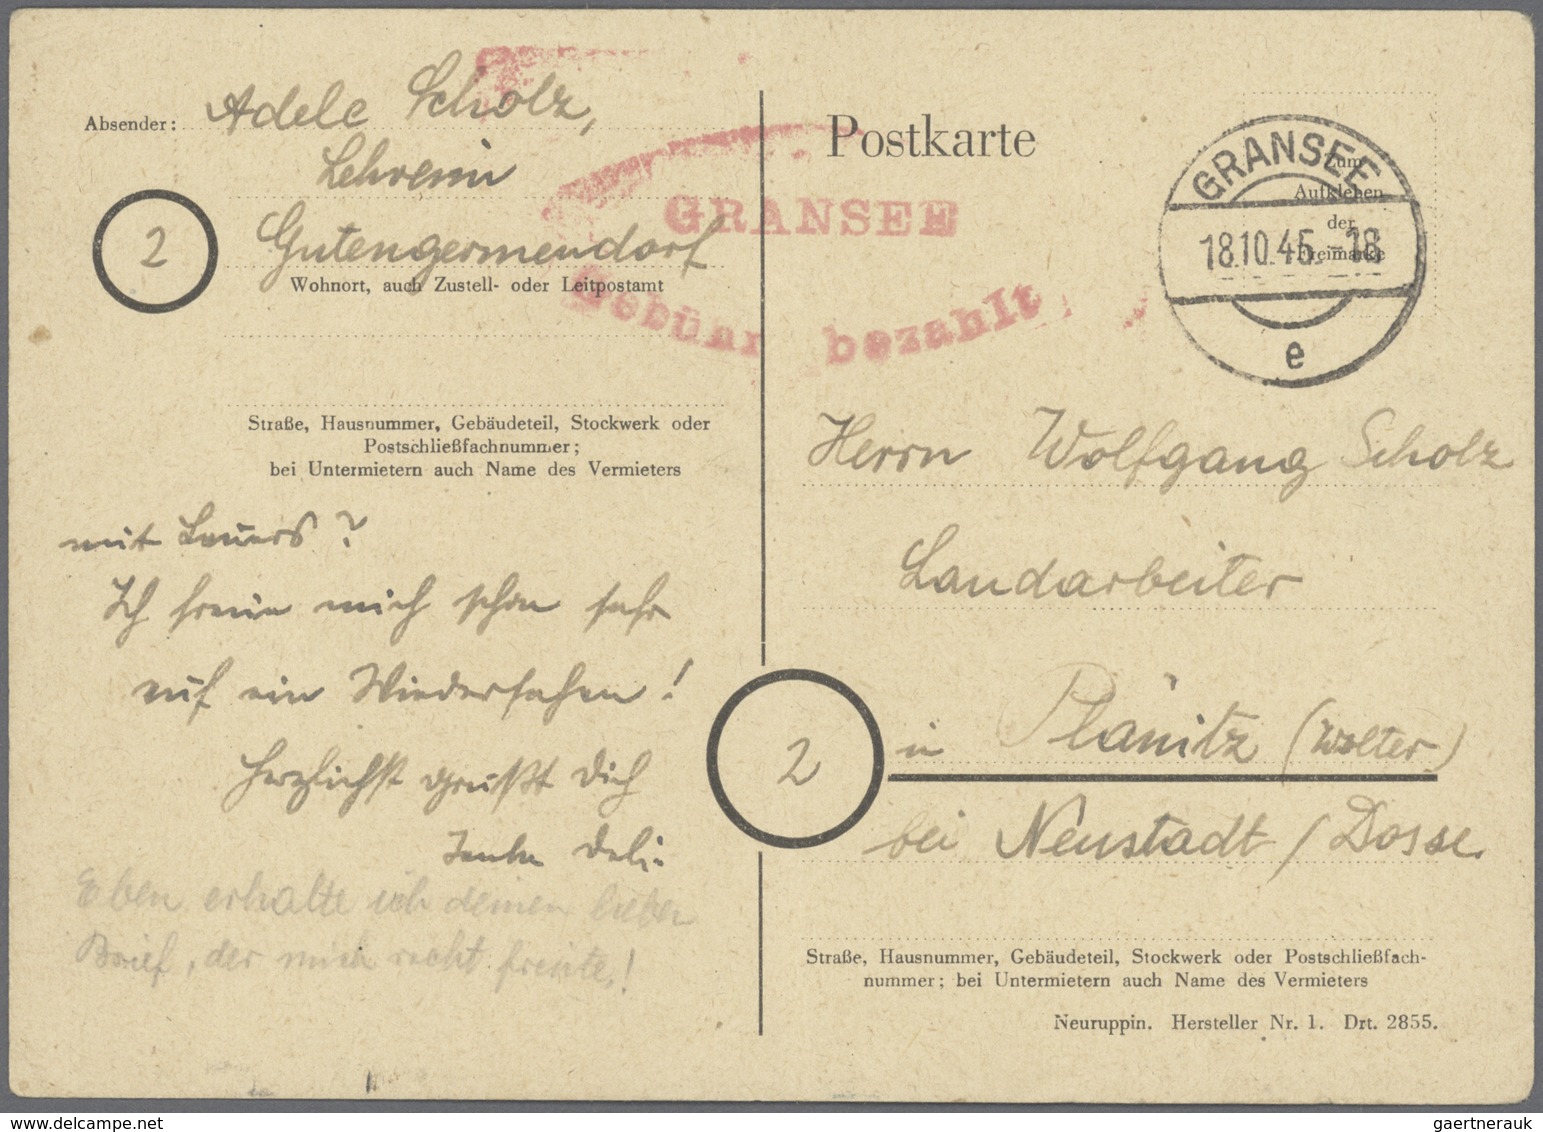 Absender: Adele Scholz,
Lehrerin
2
Gutengermendorf
Wohnort, auch Zustell- oder Leitpostamt
Straße, Hausnummer, Gebäudeteil, Stockwerk oder
Postschließfachnummer;
bei Untermietern auch Name des Vermieters
mit Lauers?
Ich freue mich schon sehr
auf ein Wiedersehen!
Herzlichst grüßt Dich
Tante Deli.
Eben erhalte ich deinen lieben
Brief, der mich recht freute!
GRANSEE
Gebühr bezahlt
Postkarte
Zum
Aufkleben
der
Freimarke
GRANSEE
18.10.45.-18
e
Herrn Wolfgang Scholz
Landarbeiter
2
in Plänitz (Wolter)
bei Neustadt / Dosse
Straße, Hausnummer, Gebäudeteil, Stockwerk oder Postschließfach-
nummer; bei Untermietern auch Name des Vermieters
Neuruppin. Hersteller Nr. 1. Drt. 2855.
gaertnerauk @ delcampe.net